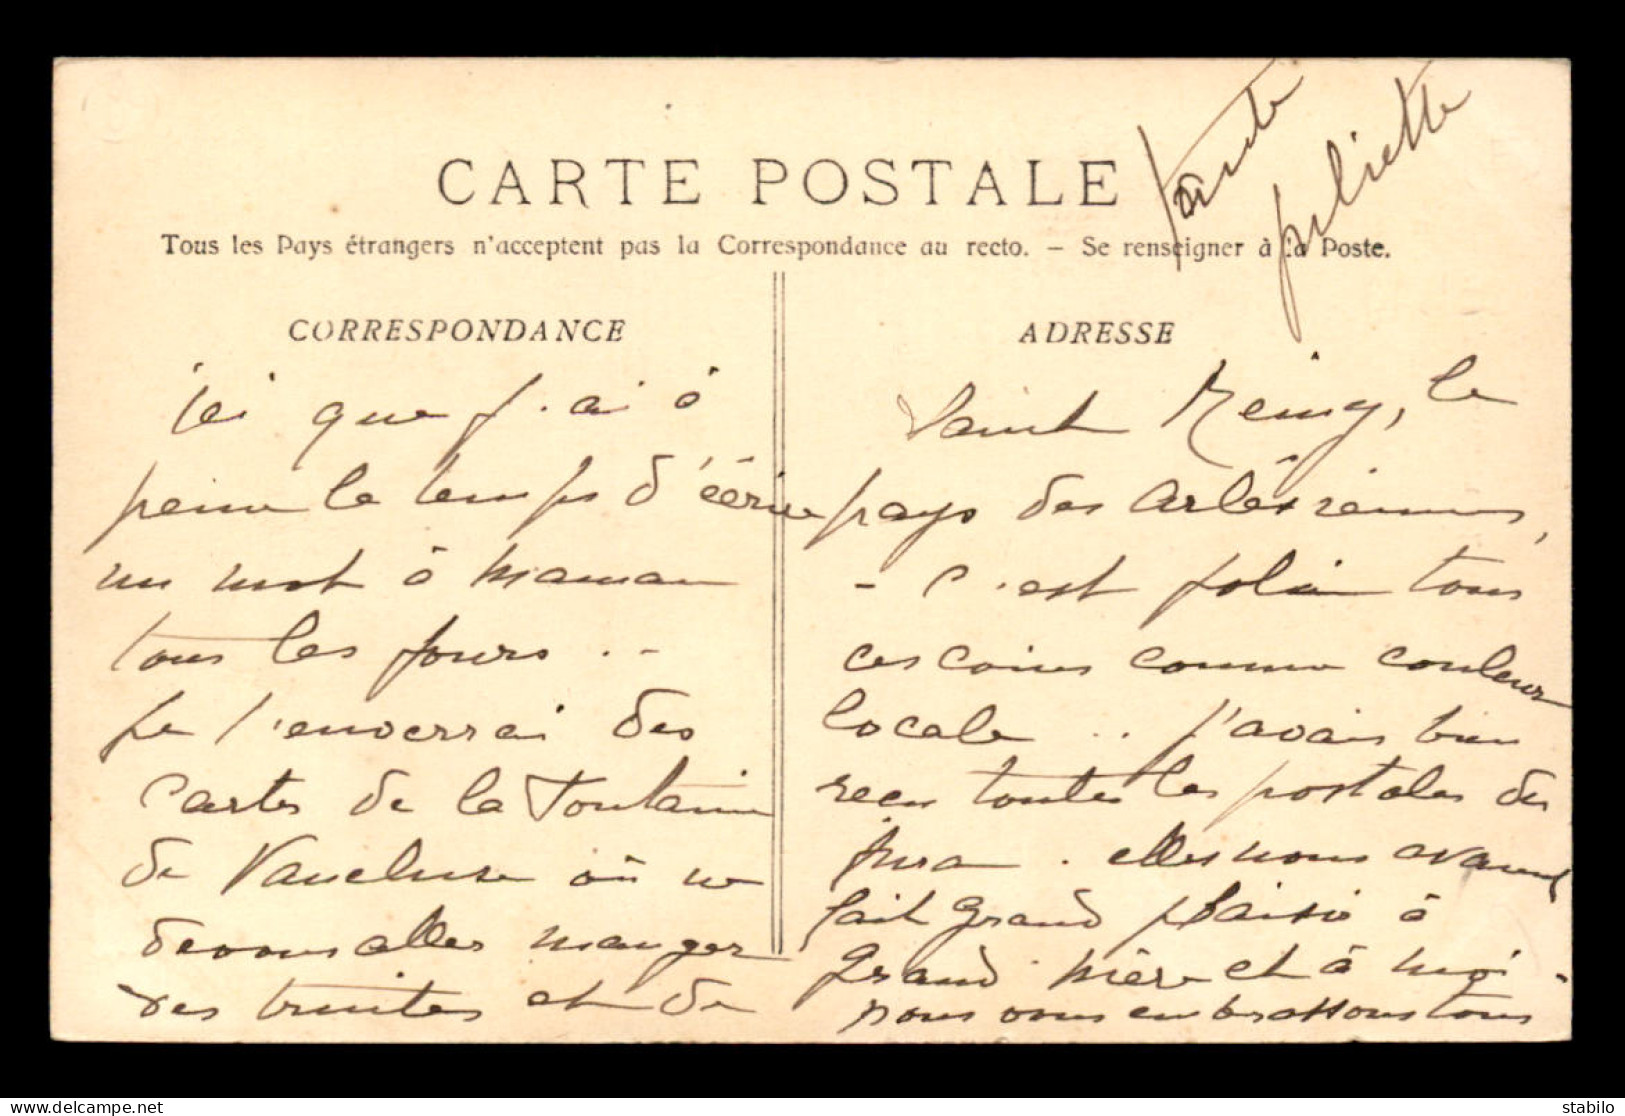 CARTE POSTALE
Tous les Pays étrangers n'acceptent pas la Correspondance au recto. — Se renseigner à la Poste.
CORRESPONDANCE
ici que j'ai à
peine le temps d'écrire
un mot à maman
tous les jours . -
je t'enverrai des
cartes de la Fontaine
de Vaucluse où ne
devons aller manger
des truites et de
ADRESSE
Saint Remy, le
pays des Arlésiennes,
- C'est joli tous
ces coins comme couleur
locale .. J'avais bien
reçu toutes les postales du
Jura . elles nous avaient
fait grand plaisir à
grand mère et à moi -
nous vous embrassons tous
tante
juliette
stabilo